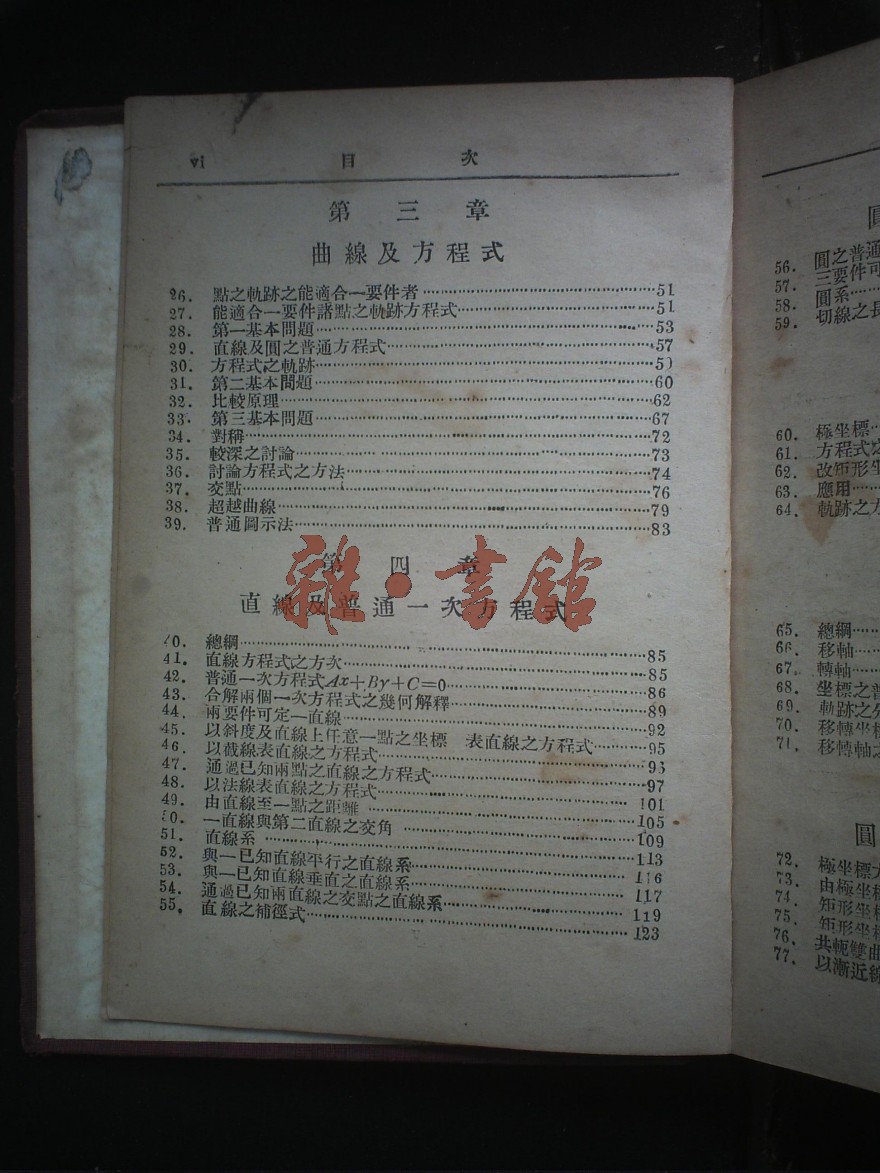 vi 目 次
第 三 章
曲線及方程式
26. 點之軌跡之能適合一要件者 51
27. 能適合一要件諸點之軌跡方程式 51
28. 第一基本問題 53
29. 直線及圓之普通方程式 57
30. 方程式之軌跡 5
31. 第二基本問題 60
32. 比較原理 62
33. 第三基本問題 67
34. 對稱 72
35. 較深之討論 73
36. 討論方程式之方法 74
37. 交點 76
38. 超越曲線 79
39. 普通圖示法 83
第 四 章
雜·書館
直線及普通一次方程式
40. 總綱 85
41. 直線方程式之方次 85
42. 普通一次方程式Ax+By+C=0 86
43. 合解兩個一次方程式之幾何解釋 89
44. 兩要件可定一直線 92
45. 以斜度及直線上任意一點之坐標 表直線之方程式 95
46. 以截線表直線之方程式 95
47. 通過已知兩點之直線之方程式 97
48. 以法線表直線之方程式 101
49. 由直線至一點之距離 105
50. 一直線與第二直線之交角 109
51. 直線系 113
52. 與一已知直線平行之直線系 116
53. 與一已知直線垂直之直線系 117
54. 通過已知兩直線之交點之直線系 119
55. 直線之補徑式 123
圓
56. 圓之普通
57. 三要件可
58. 圓系
59. 切線之長
60. 極坐標
61. 方程式之
62. 改矩形坐
63. 應用
64. 軌跡之方
65. 總綱
66. 移軸
67. 轉軸
68. 坐標之普
69. 軌跡之分
70. 移轉坐標
71. 移轉軸之
圓
72. 極坐標
73. 由極坐標
74. 矩形坐標
75. 矩形坐標
76. 共軛雙曲
77. 以漸近線